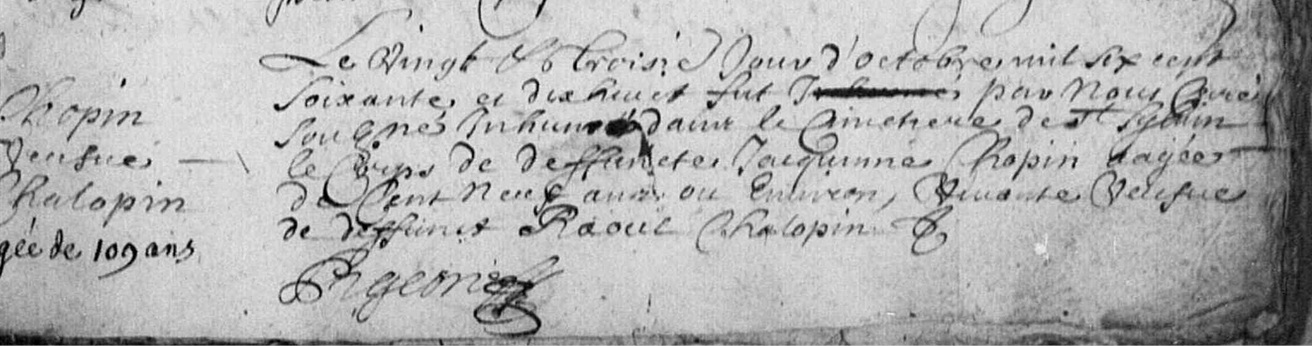 Chopin
Veufue
Chalopin
gée de 109 ans
Le Vingt & troisie Jour d'octobre mil six cent
soixante et dixhuict fut par Nous Curé
sousigné Inhumé dans le Cimetiere de St Sylvin
le Corps de deffuncte Jacquinne Chopin aagée
de Cent Neuf ans ou Environ, Vivante Veufue
de deffunct Raoul Chalopin